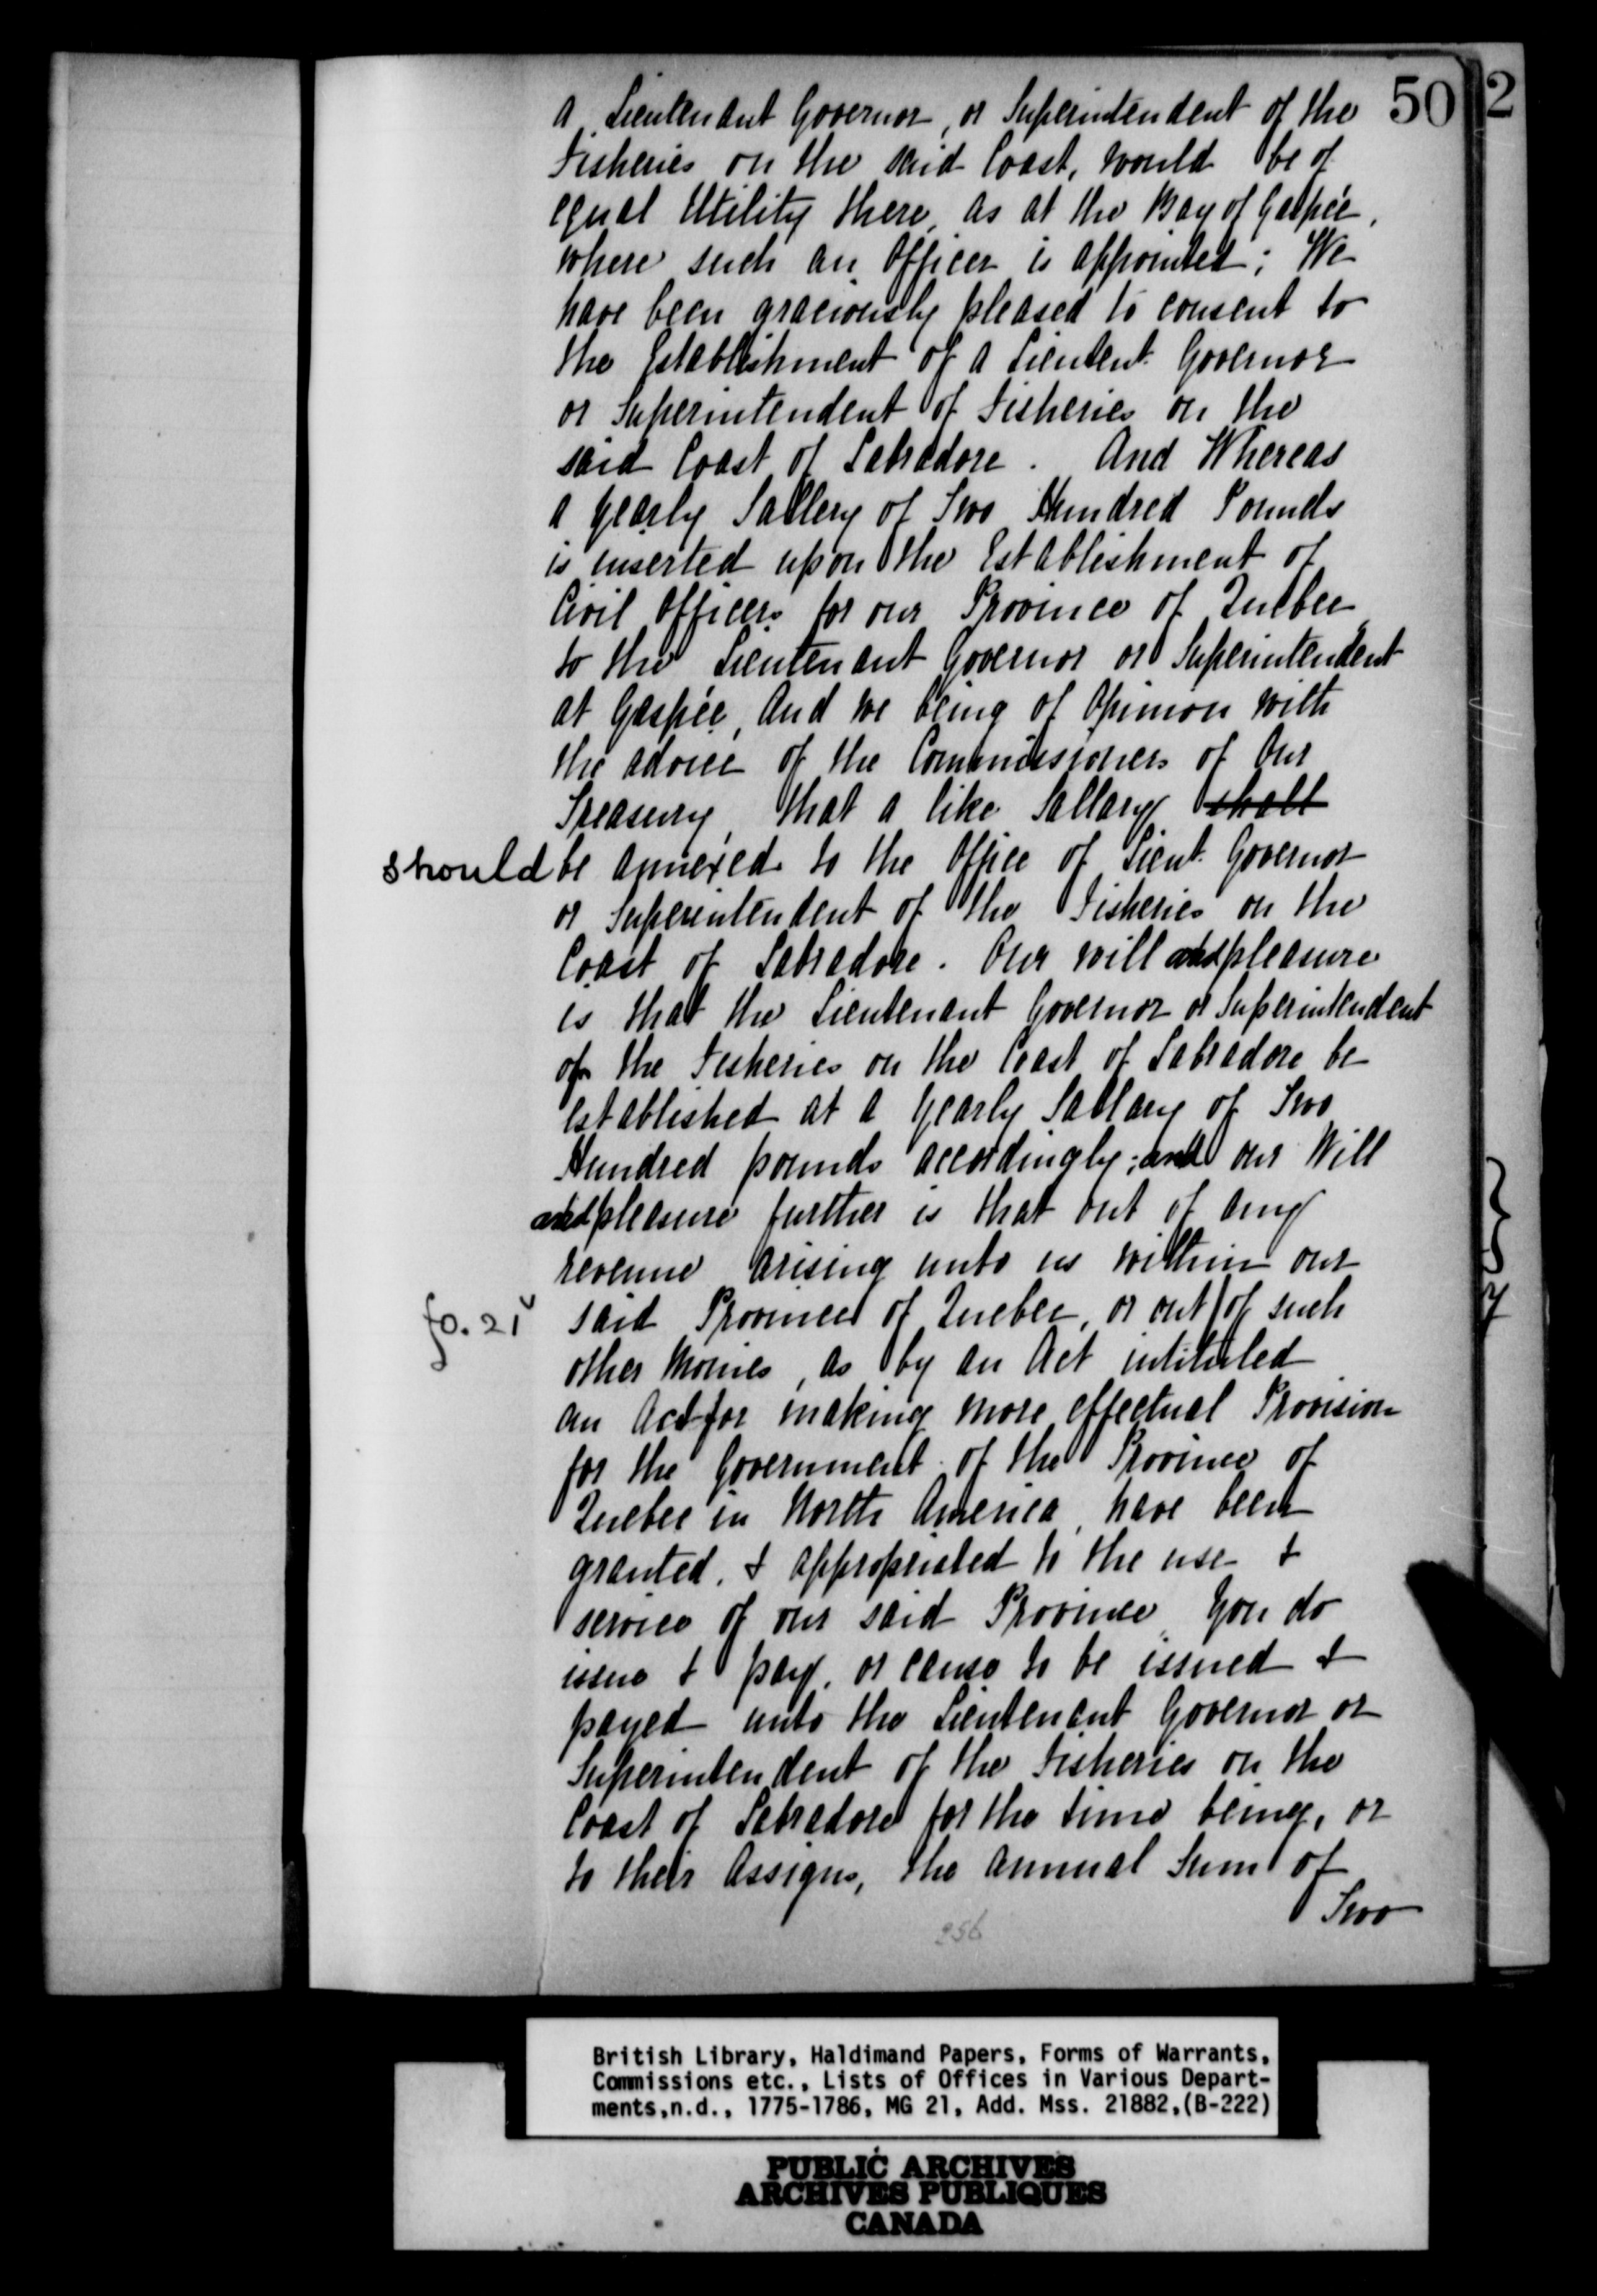 50
2
a Lieutenant Governor, or Superintendent of the
Fisheries on the said Coast, would be of
equal Utility there, as at the Bay of Gaspée,
where such an Officer is appointed; We
have been graciously pleased to consent to
the Establishment of a Lieutent. Governor
or Superintendent of Fisheries on the
said Coast of Labradore. And Whereas
a yearly Sallery of Two Hundred Pounds
is inserted upon the Establishment of
Civil Officers for our Province of Quebec
to the Lieutenant Governor or Superintendent
at Gaspée, And we being of Opinion with
the advice of the Commissioners of Our
Treasury, that a like Sallary shall
should be annexed to the Office of Lieut. Governor
or Superintendent of the Fisheries on the
Coast of Labradore. Our will and pleasure
is that the Lieutenant Governor or Superintendent
of the Fisheries on the Coast of Labradore be
established at a yearly Sallary of Two
Hundred pounds accordingly; and our Will
and pleasure further is that out of any
revenue arising unto us within our
fo. 21v said Province of Quebec, or out of such
other Monies, as by an Act intituled
an Act for making more effectual Provision
for the Government of the Province of
Quebec in North America, have been
granted, & appropriated to the use &
service of our said Province, You do
issue & pay, or cause to be issued &
payed unto the Lieutenant Governor or
Superintendent of the Fisheries on the
Coast of Labradore for the time being, or
to their Assigns, the annual Sum of
Two
256
British Library, Haldimand Papers, Forms of Warrants,
Commissions etc., Lists of Offices in Various Depart-
ments,n.d., 1775-1786, MG 21, Add. Mss. 21882,(B-222)
PUBLIC ARCHIVES
ARCHIVES PUBLIQUES
CANADA